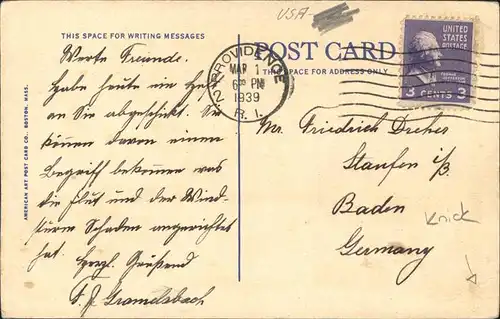 USA
THIS SPACE FOR WRITING MESSAGES
POST CARD
THIS SPACE FOR ADDRESS ONLY
PROVIDENCE
MAR 1
6 30 PM
1939
R. I.
UNITED
STATES
POSTAGE
3 CENTS 3
AMERICAN ART POST CARD CO., BOSTON, MASS.
Werte Freunde.
Habe heute ein Heft
an Sie abgeschickt. Sie
können davon einen
Begriff bekommen was
die Flut und der Wind-
sturm Schaden angerichtet
hat. Herzl. Grüßend
F. J. Gramelsbach
Mr. Friedrich Dreher
Staufen i/B.
Baden
Germany
Knick